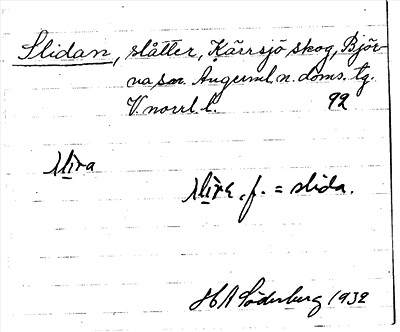 Slidan, slåtter, Kärrsjö skog, Björ-
na sn. Ångerml. n. doms. tg.
V. norrl. l. 92
slira
slire, f. = slida.
H A Söderberg 1932